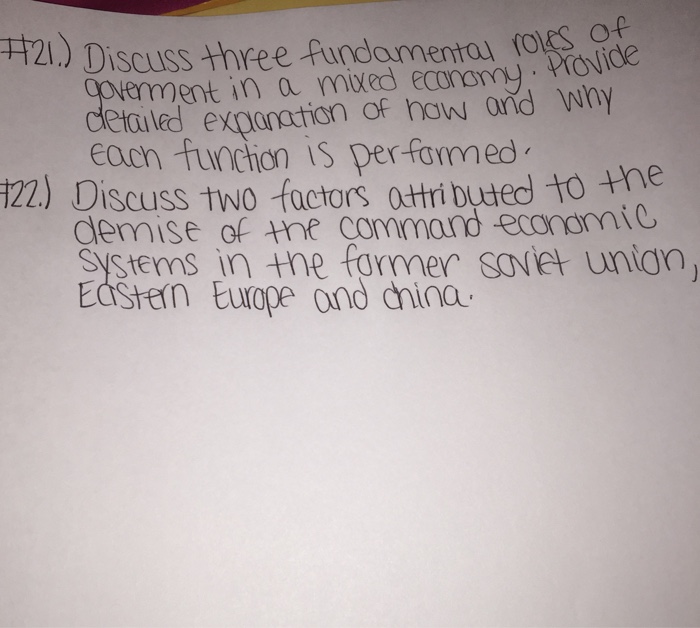 #21.) Discuss three fundamental roles of
goverment in a mixed economy. Provide
detailed explanation of how and why
each function is performed.
#22.) Discuss two factors attributed to the
demise of the command economic
systems in the former soviet union,
Eastern Europe and china.